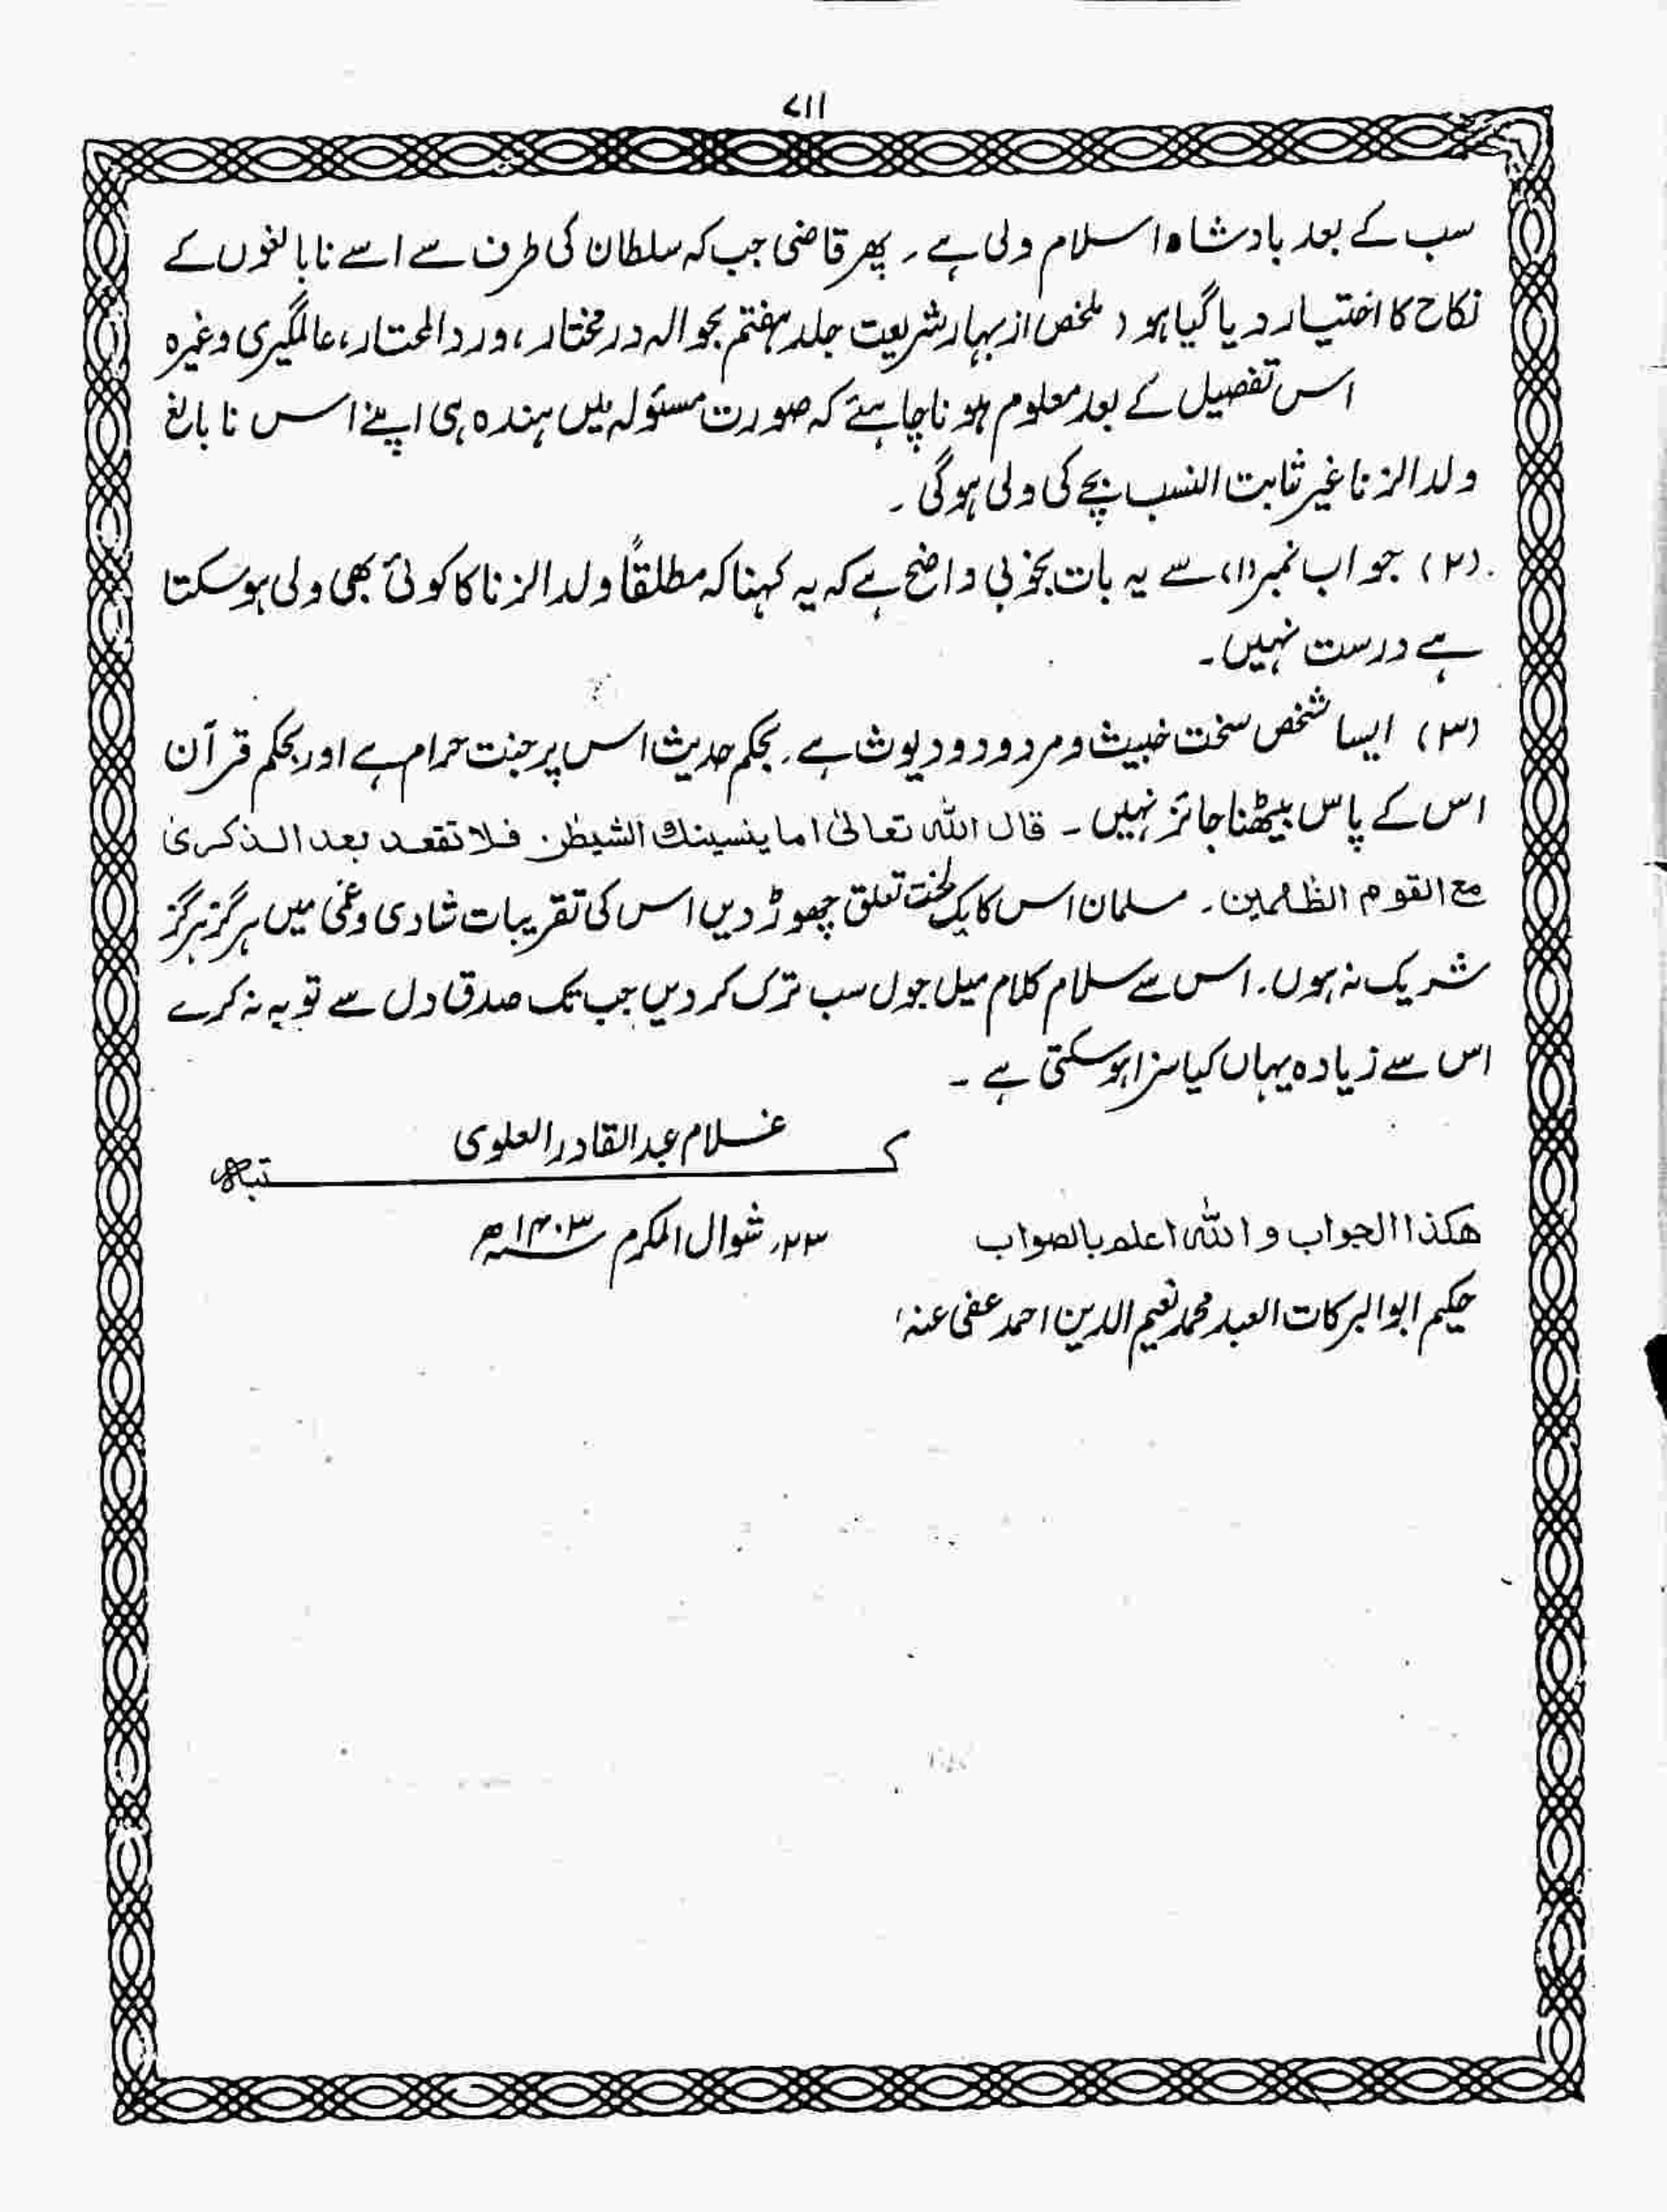 ۷۱۱
سب کے بعد بادشاہ اسلام ولی ہے۔ پھر قاضی جب کہ سلطان کی طرف سے اسے نابالغوں کے
نکاح کا اختیار دیا گیا ہو ( ملخص از بہار شریعت جلد ہفتم بحوالہ درمختار، ورد المحتار، عالمگیری وغیرہ
اس تفصیل کے بعد معلوم ہونا چاہئے کہ صورت مسئولہ میں ہندہ ہی اپنے اس نابالغ
ولد الزنا غیر ثابت النسب بچے کی ولی ہوگی۔
(۲) جواب نمبر (۱) سے یہ بات بخوبی واضح ہے کہ یہ کہنا کہ مطلقاً ولد الزنا کا کوئی بھی ولی ہو سکتا
ہے درست نہیں۔
(۳) ایسا شخص سخت خبیث و مردود و دیوث ہے۔ بحکم حدیث اس پر جنت حرام ہے اور بحکم قرآن
اس کے پاس بیٹھنا جائز نہیں۔ قال اللہ تعالیٰ اما ینسینك الشیطٰن فلا تقعد بعد الذکریٰ
مع القوم الظٰلمین۔ مسلمان اس کا یک لخت تعلق چھوڑ دیں اس کی تقریبات شادی وغمی میں ہرگز ہرگز
شریک نہ ہوں۔ اس سے سلام کلام میل جول سب ترک کر دیں جب تک صدق دل سے توبہ نہ کرے
اس سے زیادہ یہاں کیا سزا ہو سکتی ہے۔
غلام عبد القادر العلوی
کتبہ
ھکذا الجواب و اللہ اعلم بالصواب ۲۳؍ شوال المکرم ۱۴۰۳ھ
حکیم ابو البرکات العبد محمد نعیم الدین احمد عفی عنہ